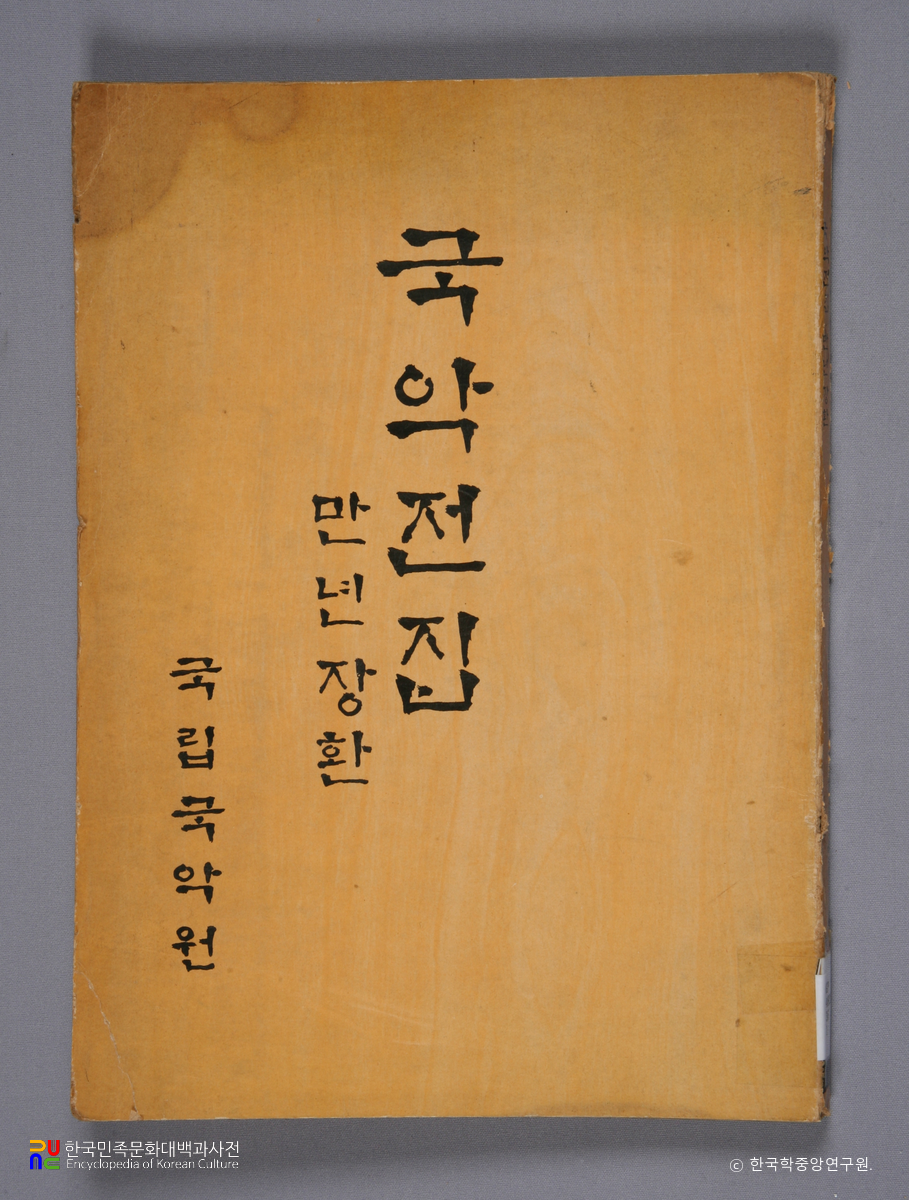 국악전집
만년장환
국립국악원
한국민족문화대백과사전
Encyclopedia of Korean Culture
© 한국학중앙연구원.